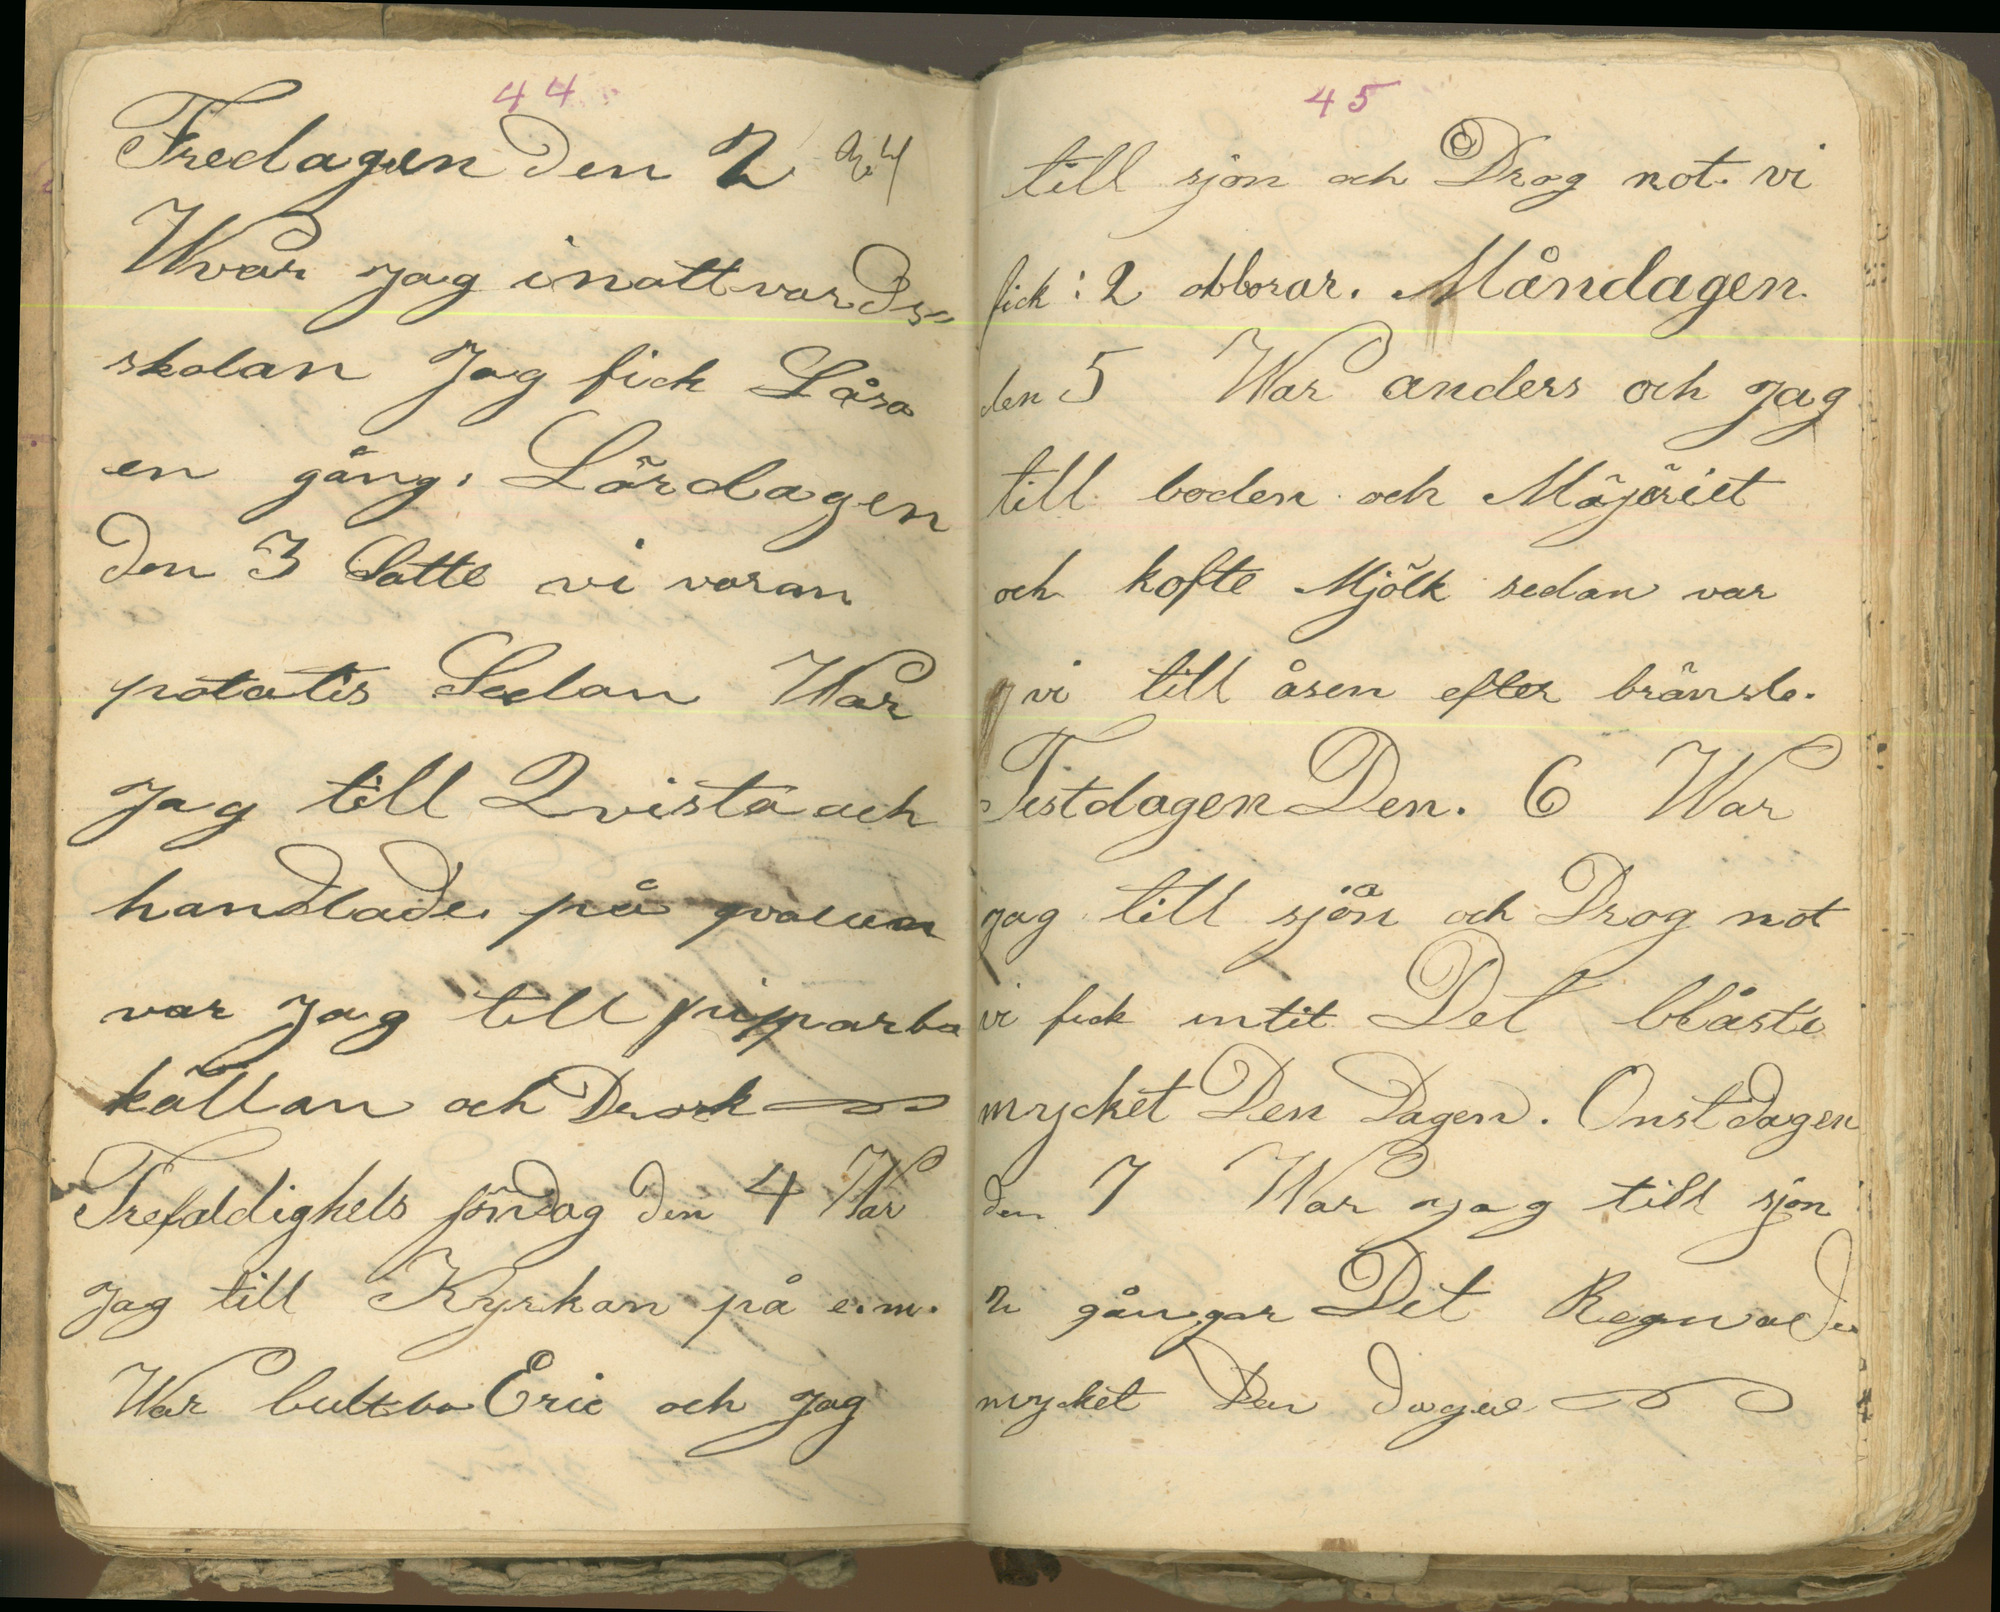 44
Fredagen Den 2
Wvar jag inattvards-
skolan Jag fick Låsa
en gång, Lördagen
Den 3 Satte vi voran
potatis Sedan War
jag till Qvista och
handlade på qvälen
var jag till pipparbo
källan och Drork
Trefaldighets söndag Den 4 War
jag till Kyrkan på e.m.
War bultbo Eric och jag
45
till sjön och Drog not. vi
fick: 2 abborar. Måndagen
den 5 War anders och jag
till boden och Mäjäriet
och kofte Mjölk sedan var
vi till åsen efter bränsle.
Tistdagen Den. 6 War
jag till sjön och Drog not
vi fick intit Det blåste
mycket Den Dagen. Onstdagen
den 7 War jag till sjön
2 gångar Det Regnade
mycket Den dagen